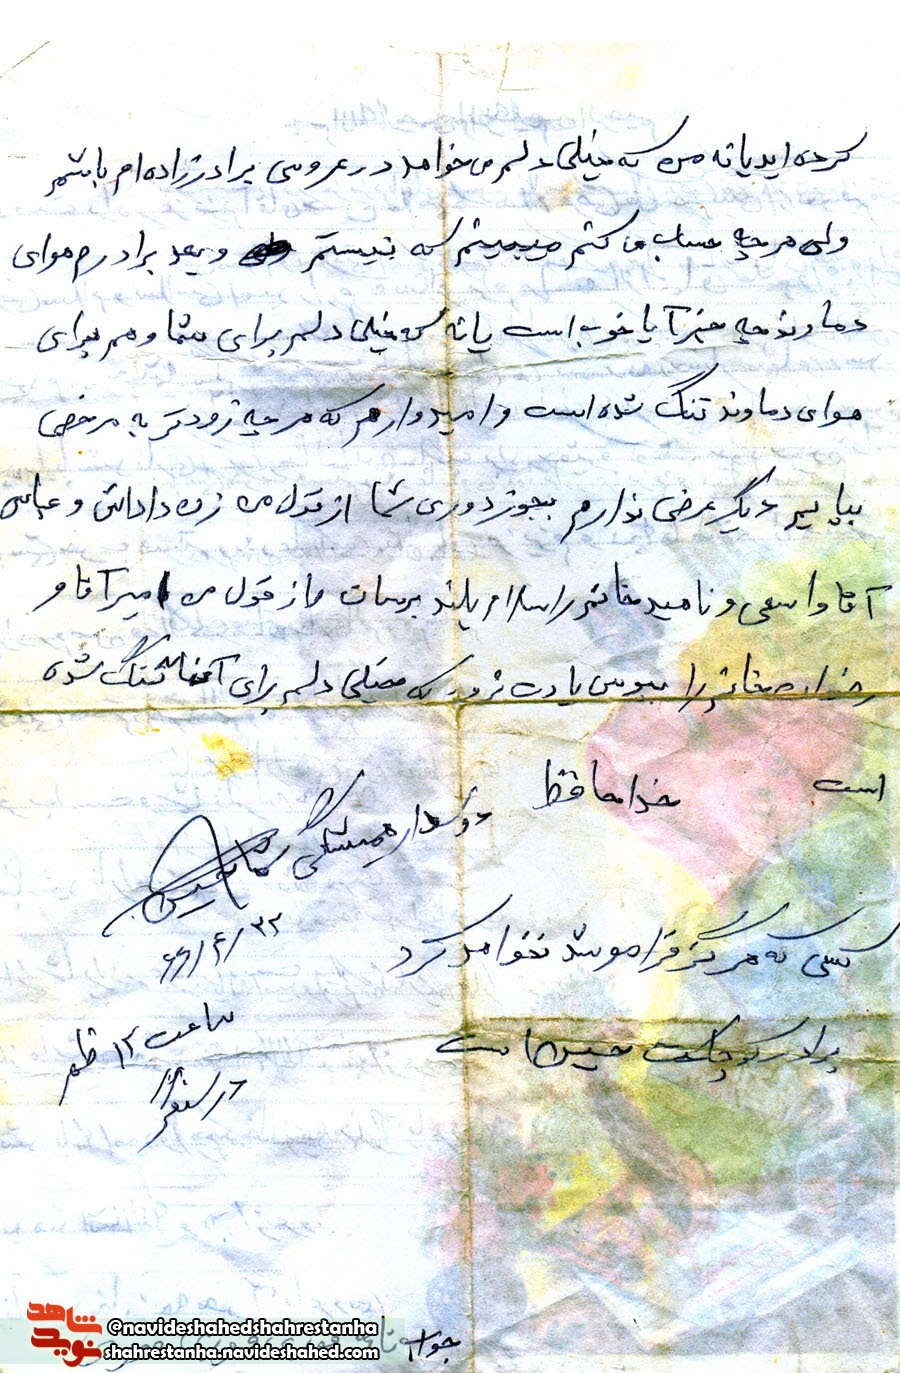 کرده اید یا نه من که خیلی دلم می خواهد در عروسی برادرزاده ام باشم
ولی هر چه حساب می کنم میبینم که نیستم و بعد برادرم هوای
دماوند چه خبر آیا خوب است یا نه که خیلی دلم برای شما و هم برای
هوای دماوند تنگ شده است و امیدوارم که هر چه زودتر به مرخصی
بیایم دیگر عرضی ندارم بجوز دوری شما از قول من زن داداش و عباس
آقا و اسعی و ناهید خانم را سلام بلند برسان و از قول من امیر آقا و
خانم را ببوس یادت نرود که خیلی دلم برای آنها تنگ شده
است
خداحافظ
دوستدار همیشگی شما حسین
۶۶/۴/۲۲
کسی که هرگز فراموشت نخواهد کرد
ساعت ۱۲ ظهر
برادر کوچکت حسین است
در سنگر
جواب نامه فوری فوری
شاهد
نوید
@navideshahedshahrestanha
shahrestanha.navideshahed.com